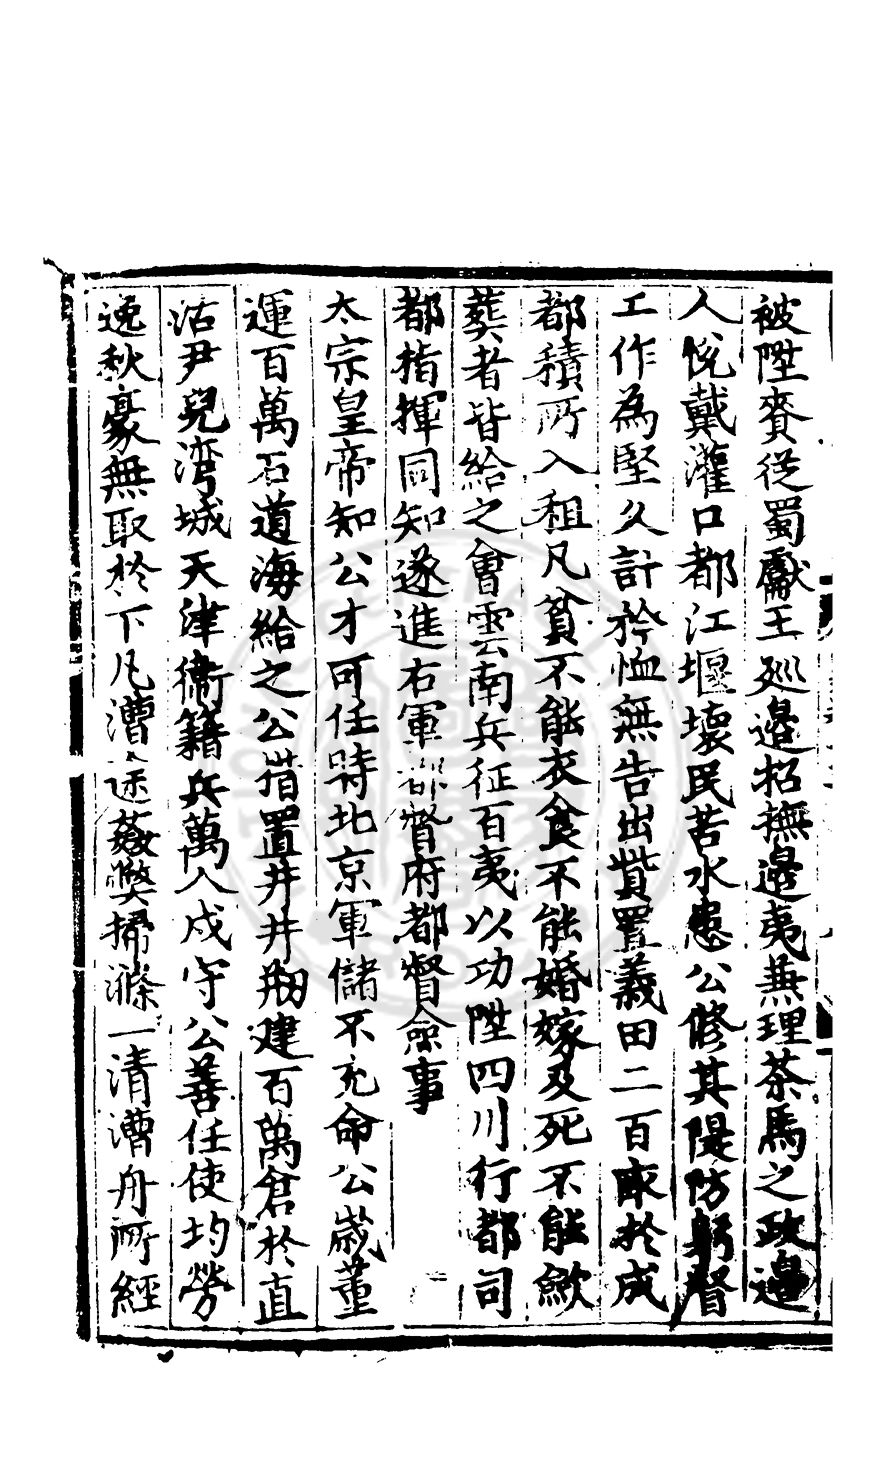 被陞賚從蜀獻王廵邊招撫邊夷兼理茶馬之政邊
人悅戴灌口都江堰壞民苦水患公修其隄防躬督
工作為堅久計矜恤無告出貲置義田二百畝於成
都積所入租凡貧不能衣食不能婚嫁及死不能歛
葬者皆給之會雲南兵征百夷以功陞四川行都司
都指揮同知遂進右軍都督府都督僉事
太宗皇帝知公才可任時北京軍儲不充命公歲董
運百萬石道海給之公措置井井剏建百萬倉於直
沽尹兒湾城天津衞籍兵萬人戍守公善任使均勞
逸秋豪無取於下凡漕途姦獘掃滌一清漕舟所經